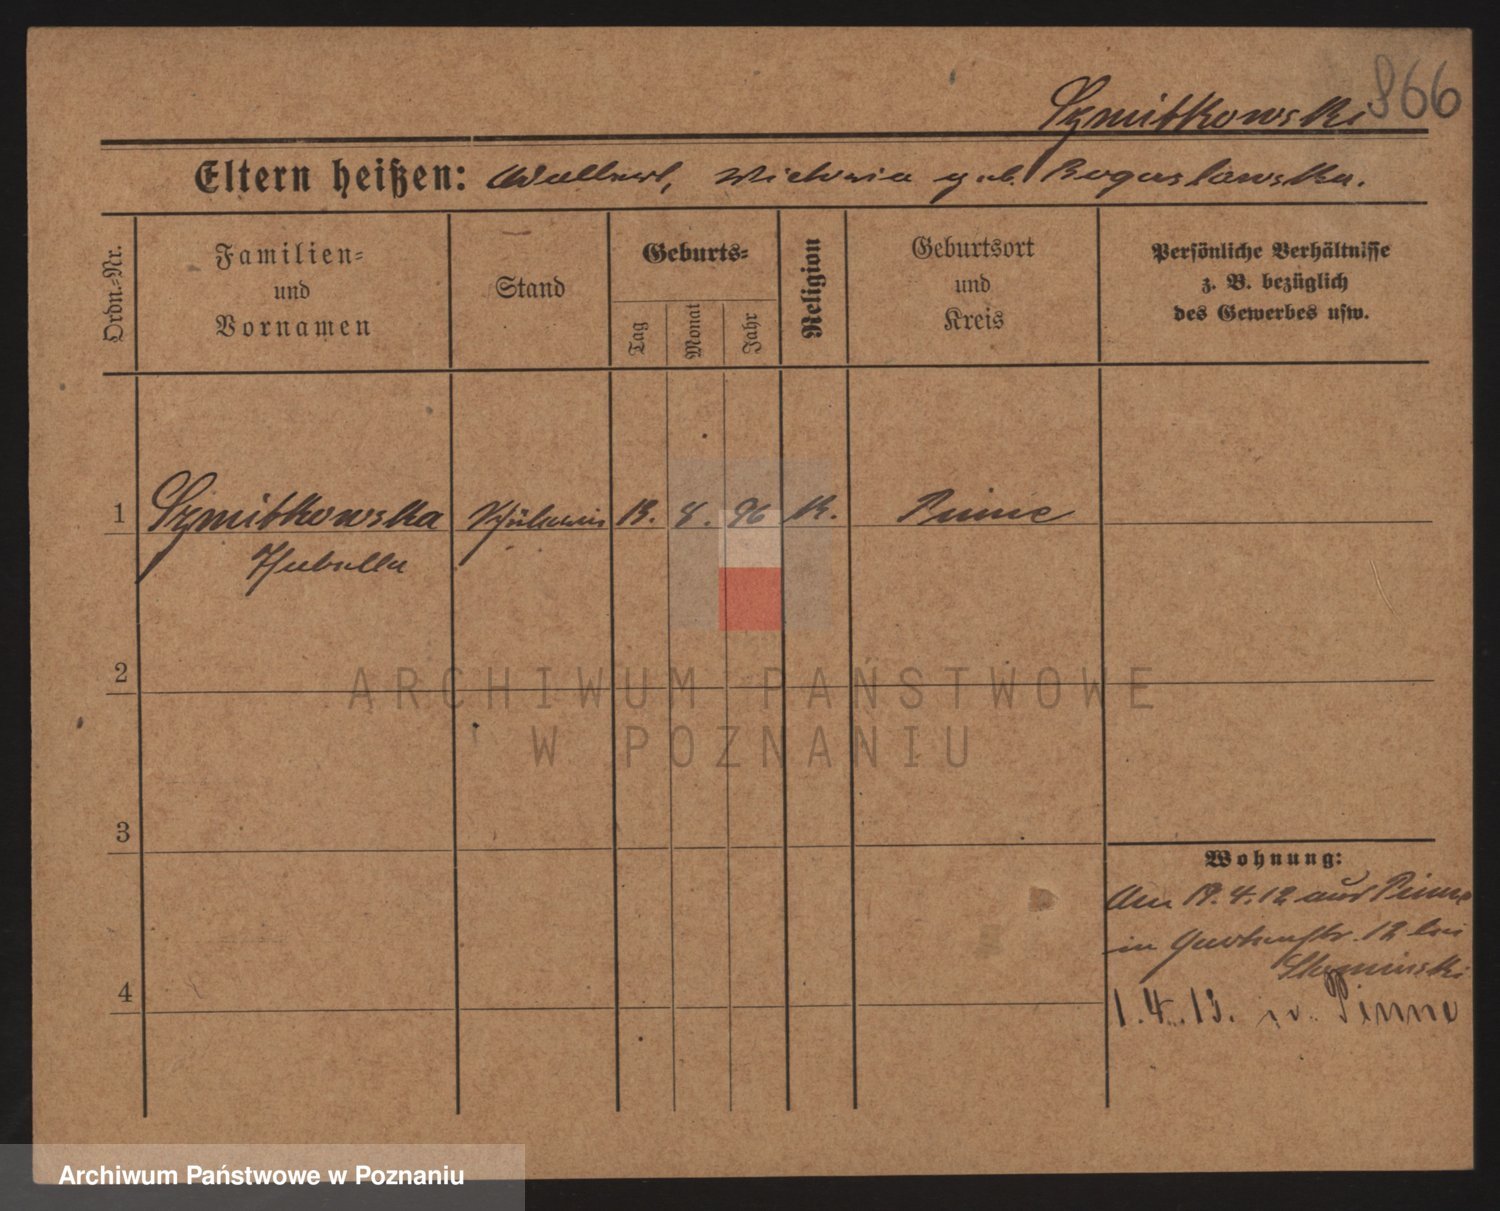 866
Szmitkowski
Eltern heißen: Walbert, Wictoria geb. Bogaslawska.
Ordn.-Nr.
Familien-
und
Vornamen
Stand
Geburts-
Tag
Monat
Jahr
Religion
Geburtsort
und
Kreis
Persönliche Verhältnisse
z. B. bezüglich
des Gewerbes usw.
1 Szmitkowska Schülerin 13. 8. 96 K. Pinne
Isabella
2
ARCHIWUM PAŃSTWOWE
W POZNANIU
3
Wohnung:
Am 19. 4. 12 aus Pinne
in Gartenstr. 12 bei
4
1. 4. 13. n. Pinne
Archiwum Państwowe w Poznaniu